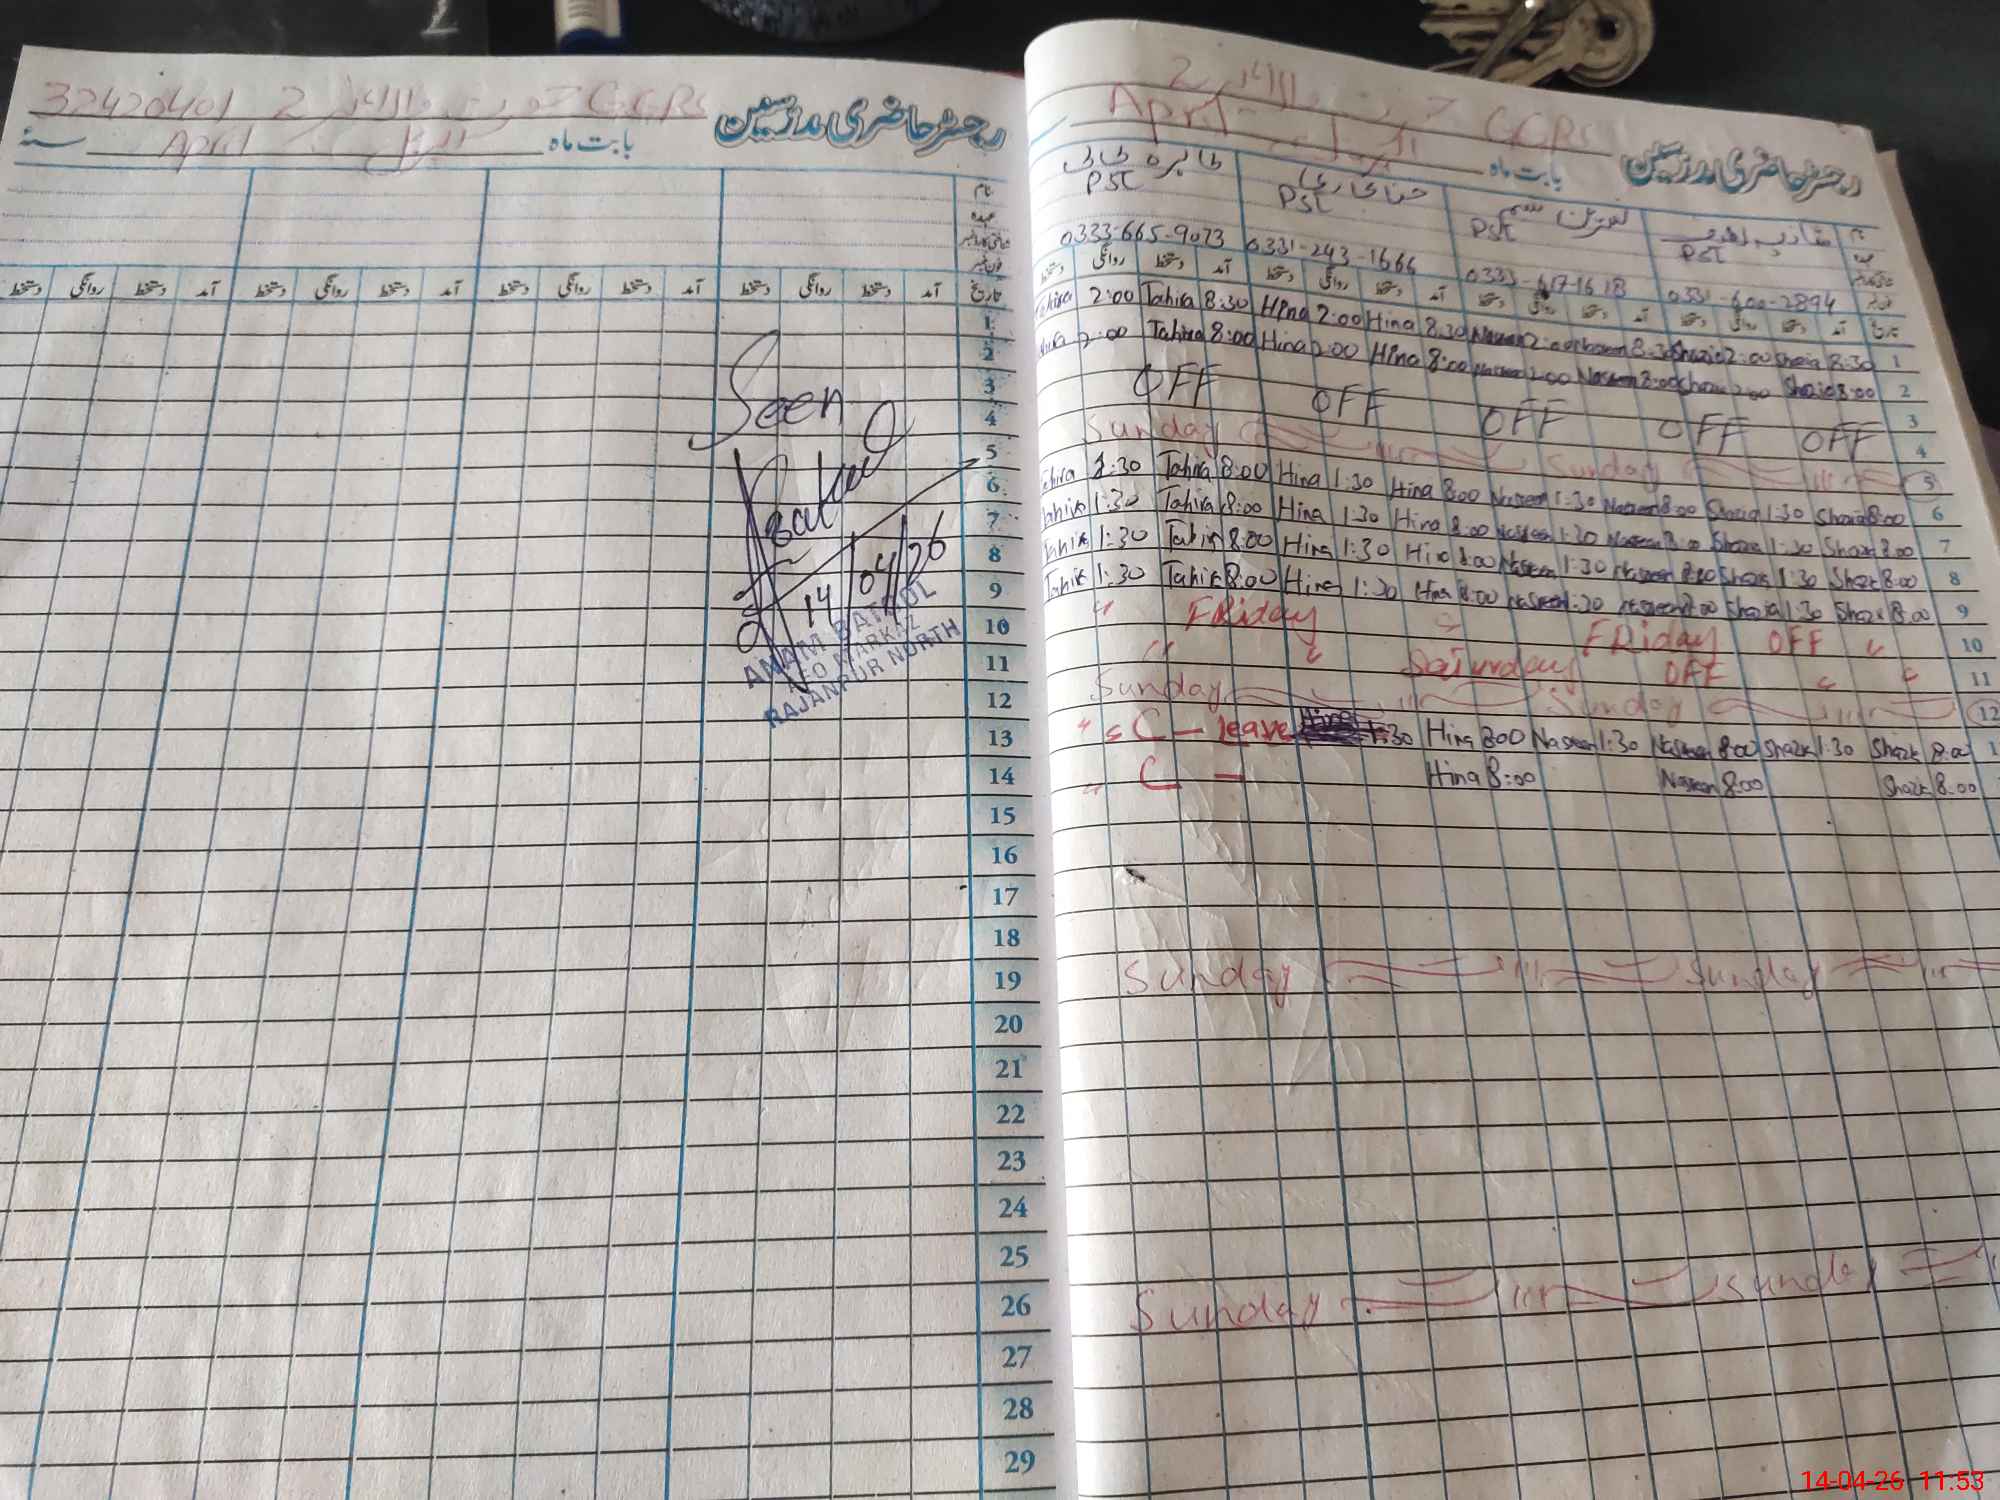 32420401 2 GGPS رجسٹر حاضری مدرسین
April اپریل بابت ماہ سنہ
نام
عہدہ
شناختی کارڈ نمبر
فون نمبر
تاریخ آمد دستخط روانگی دستخط آمد دستخط روانگی دستخط آمد دستخط روانگی دستخط آمد دستخط روانگی دستخط
1
2
3
4
5
6
7
8
9
10
11
12
13
14
15
16
17
18
19
20
21
22
23
24
25
26
27
28
29
Seen
14/04/26
ANAM BATOOL
AEO MARKAZ
RAJANPUR NORTH
2 GGPS رجسٹر حاضری مدرسین
April اپریل بابت ماہ
طاہرہ PST
حنا بخاری PST
نسرین PST
شازیہ PST
0333-665-9073 0331-243-1666 0333-617-1618 0331-600-2894
دستخط روانگی دستخط آمد دستخط روانگی دستخط آمد دستخط روانگی دستخط آمد دستخط روانگی دستخط آمد تاریخ
Tahira 2:00 Tahira 8:30 Hina 2:00 Hina 8:30 Naseen 2:00 Naseen 8:30 Shazia 2:00 Shazia 8:30 1
Tahira 2:00 Tahira 8:00 Hina 2:00 Hina 8:00 Naseen 2:00 Naseen 8:00 Shazia 2:00 Shazia 8:00 2
OFF OFF OFF OFF OFF 3
4
Sunday Sunday 5
Tahira 1:30 Tahira 8:00 Hina 1:30 Hina 8:00 Naseen 1:30 Naseen 8:00 Shazia 1:30 Shazia 8:00 6
Tahira 1:30 Tahira 8:00 Hina 1:30 Hina 8:00 Naseen 1:30 Naseen 8:00 Shazia 1:30 Shazia 8:00 7
Tahira 1:30 Tahira 8:00 Hina 1:30 Hina 8:00 Naseen 1:30 Naseen 8:00 Shazia 1:30 Shazia 8:00 8
Tahira 1:30 Tahira 8:00 Hina 1:30 Hina 8:00 Naseen 1:30 Naseen 8:00 Shazia 1:30 Shazia 8:00 9
" FRiday FRiday OFF 10
" Saturday OFF 11
Sunday Sunday 12
C - leave 1:30 Hina 8:00 Naseen 1:30 Naseen 8:00 Shazia 1:30 Shazia 8:00
C - Hina 8:00 Naseen 8:00 Shazia 8:00
Sunday Sunday
Sunday Sunday
14-04-26 11:53